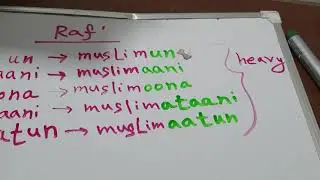 Raf'
un → muslimun
aani → muslimaani
oona → muslimoona
aani → muslimataani
atun → muslimaatun
heavy